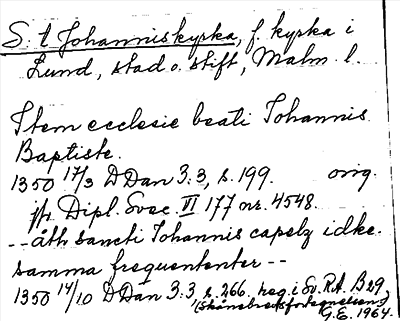 S:t Johanniskyrka, f. kyrka i
Lund, stad o. stift, Malm. l.
Item ecclesie beati Johannis
Baptiste.
1350 17/3 DDan 3:3, s. 199. orig.
jfr Dipl. Svec. VI 177 nr. 4548.
-- åth sancti Johannis capelq idke.
samma frequententer --
1350 14/10 DDan 3:3, s. 266. reg. i Sv. RA B29
(Skånebrefsförteckningen)
G.E. 1964.